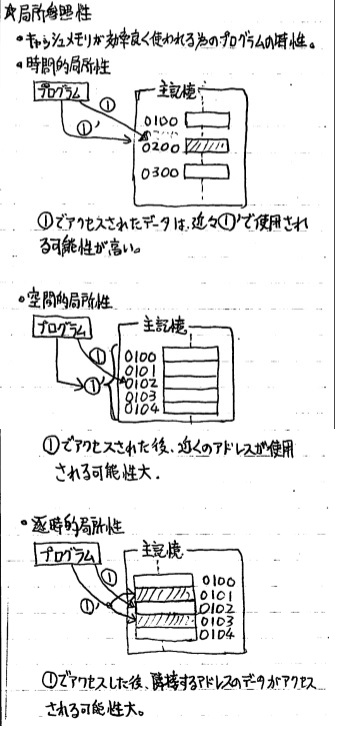 ☆局所参照性
・キャッシュメモリが効率良く使われる為のプログラムの特性。
・時間的局所性
プログラム
①
①'
主記憶
0100
0200
0300
①でアクセスされたデータは、近々①'で使用され
る可能性が高い。
・空間的局所性
プログラム
①
①'
主記憶
0100
0101
0102
0103
0104
①でアクセスされた後、近くのアドレスが使用
される可能性大.
・逐時的局所性
プログラム
①
①'
主記憶
0100
0101
0102
0103
0104
①でアクセスした後、隣接するアドレスのデータがアクセス
される可能性大。